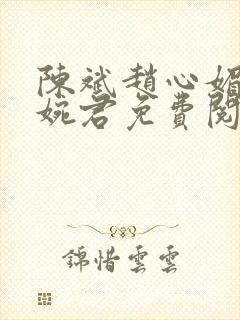 陳斌趙心媚
婉君免費閱
錦惜雲雲